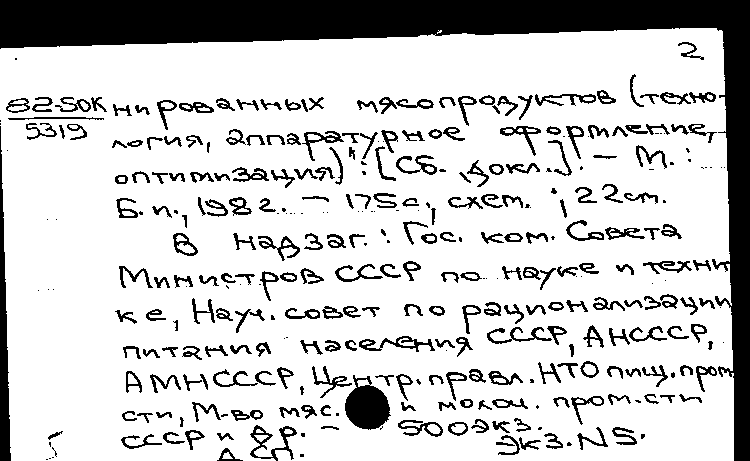 2
82-5OK нированных мясопродуктов (техно-
5319
логия, аппаратурное оформление,
оптимизация)": [Сб. докл.]. – М.:
Б. и., 1982. – 175с., схем.; 22см.
В надзаг.: Гос. ком. Совета
Министров СССР по науке и техни
ке, Науч. совет по рационализации
питания населения СССР, АНСССР,
АМНСССР, Центр. правл. НТО пищ. пром
сти, М-во мяс. и молоч. пром-сти
СССР и др. – 500экз.
ДСП. Экз. N5.